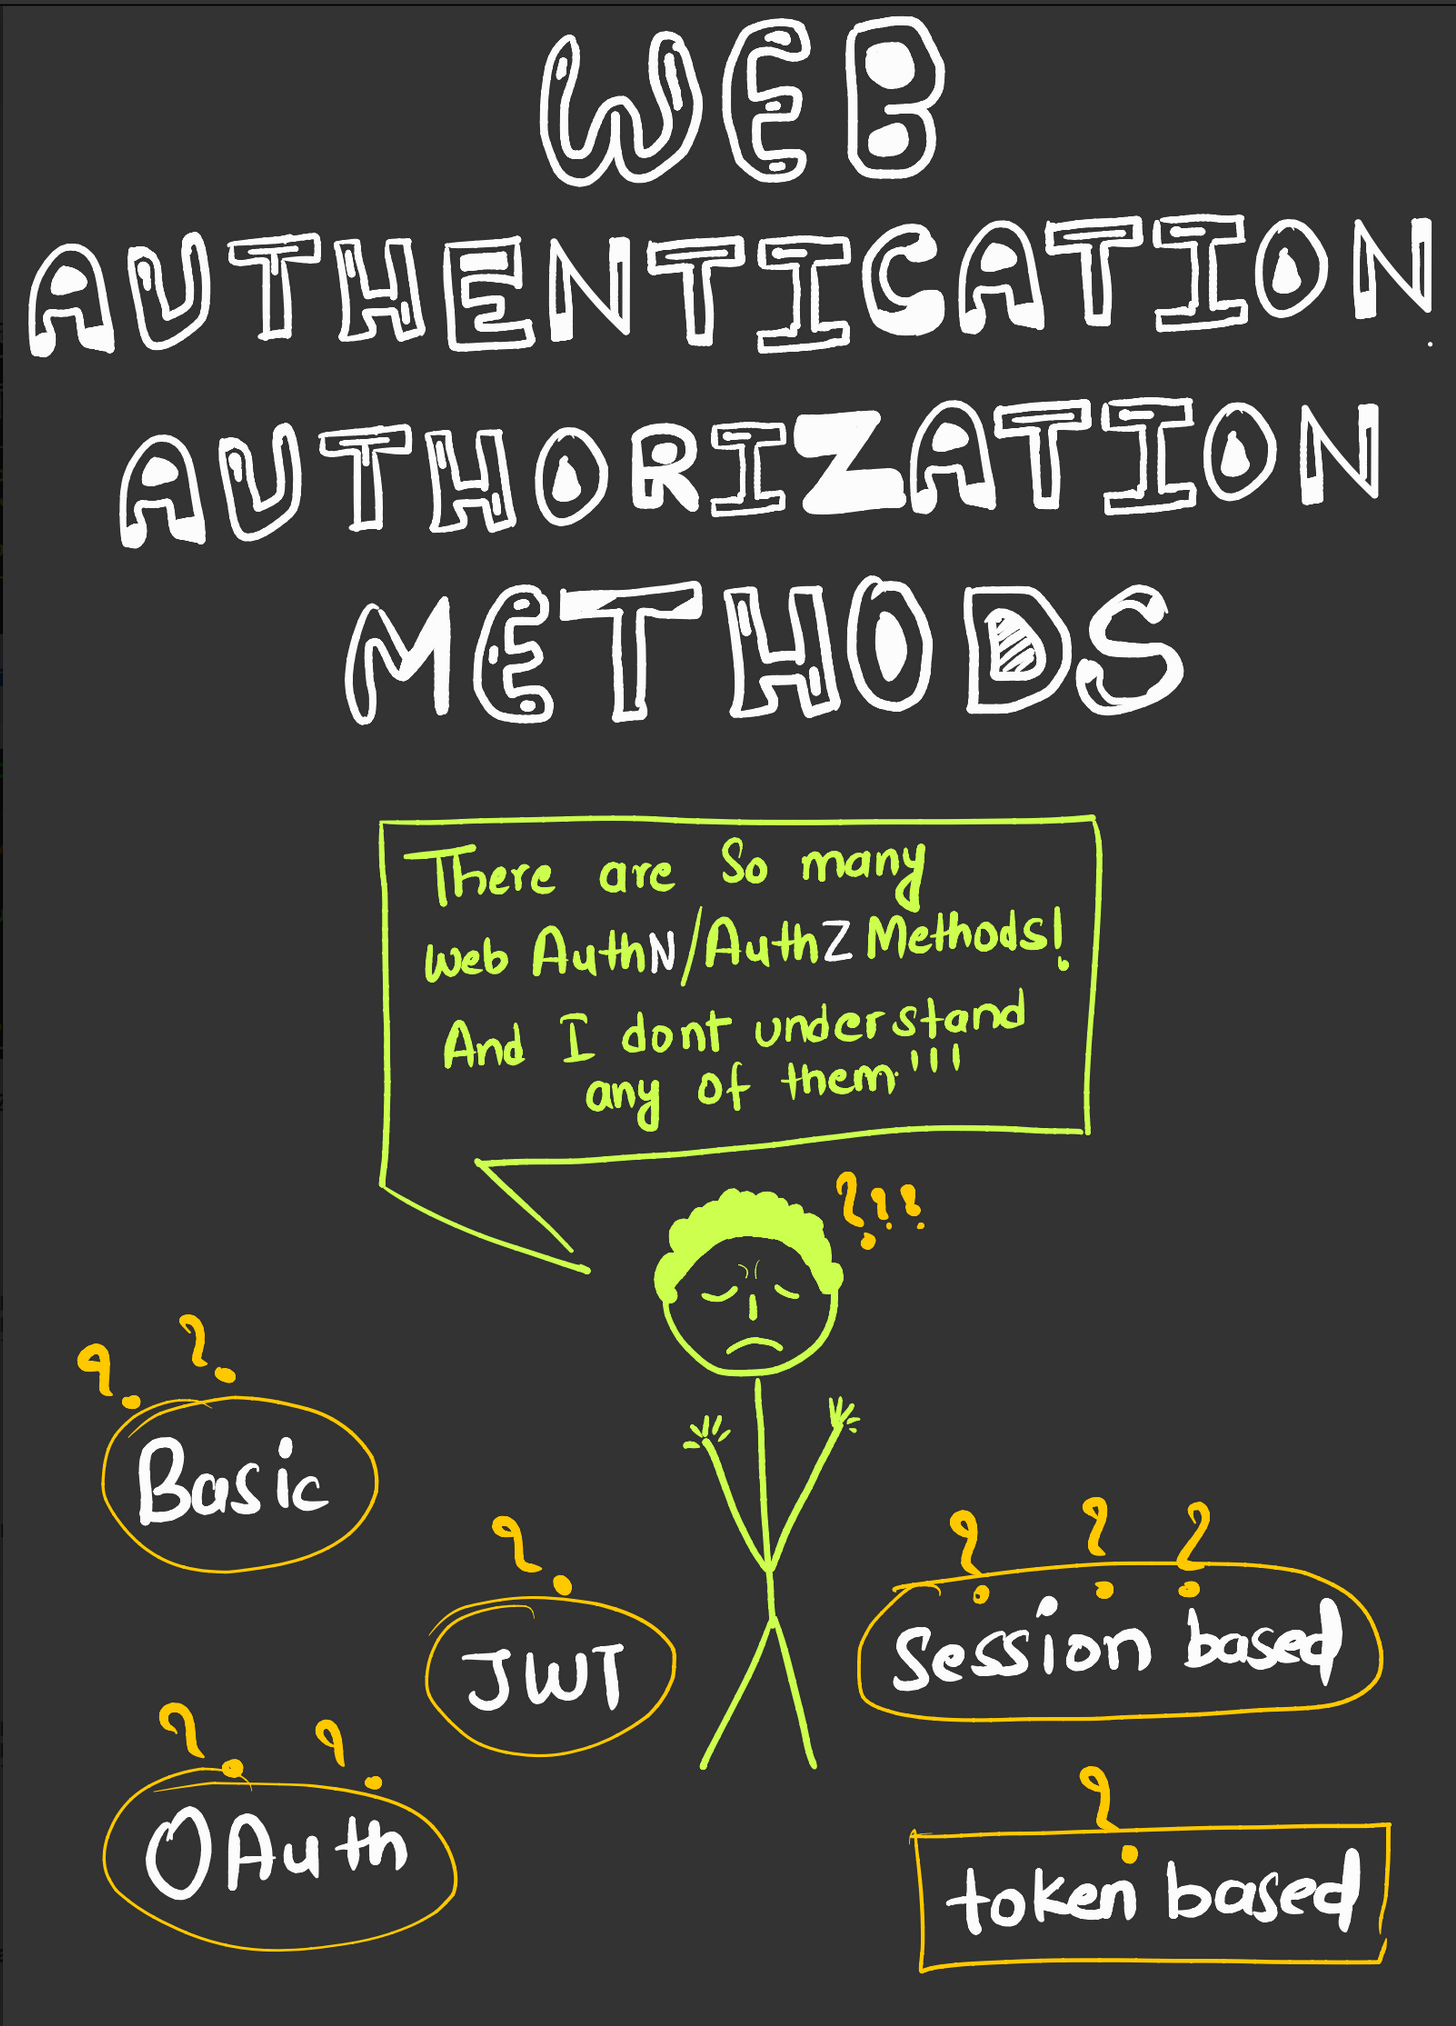 WEB
AUTHENTICATION
AUTHORIZATION
METHODS
There are So many
Web AuthN/AuthZ Methods!
And I dont understand
any of them'''
???
? ?
Basic
?
JWT
? ? ?
Session based
? ?
OAuth
?
token based